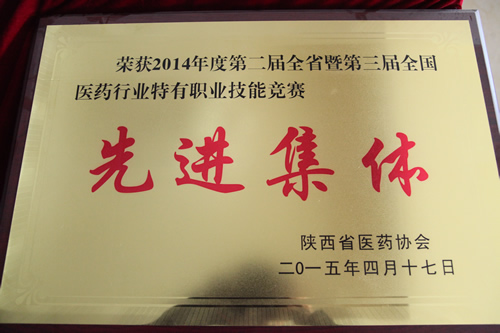 荣获2014年度第二届全省暨第三届全国
医药行业特有职业技能竞赛
先进集体
陕西省医药协会
二0一五年四月十七日